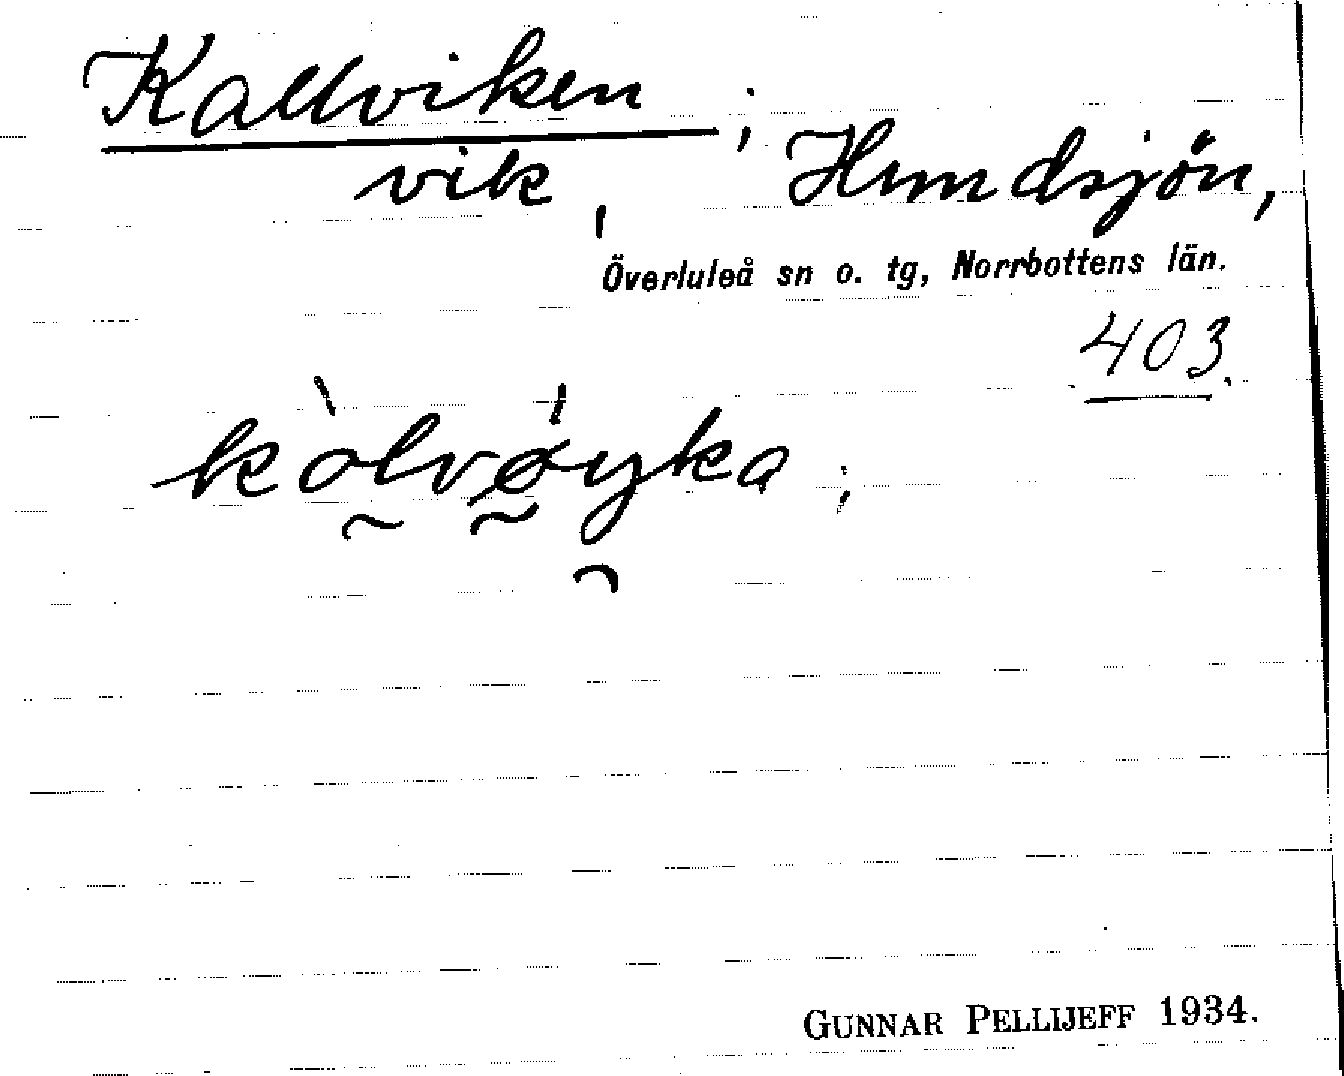 Kallviken;
vik, Hundsjön,
Överluleå sn o. tg, Norrbottens län.
403.
kòlvǿyka;
GUNNAR PELLIJEFF 1934.